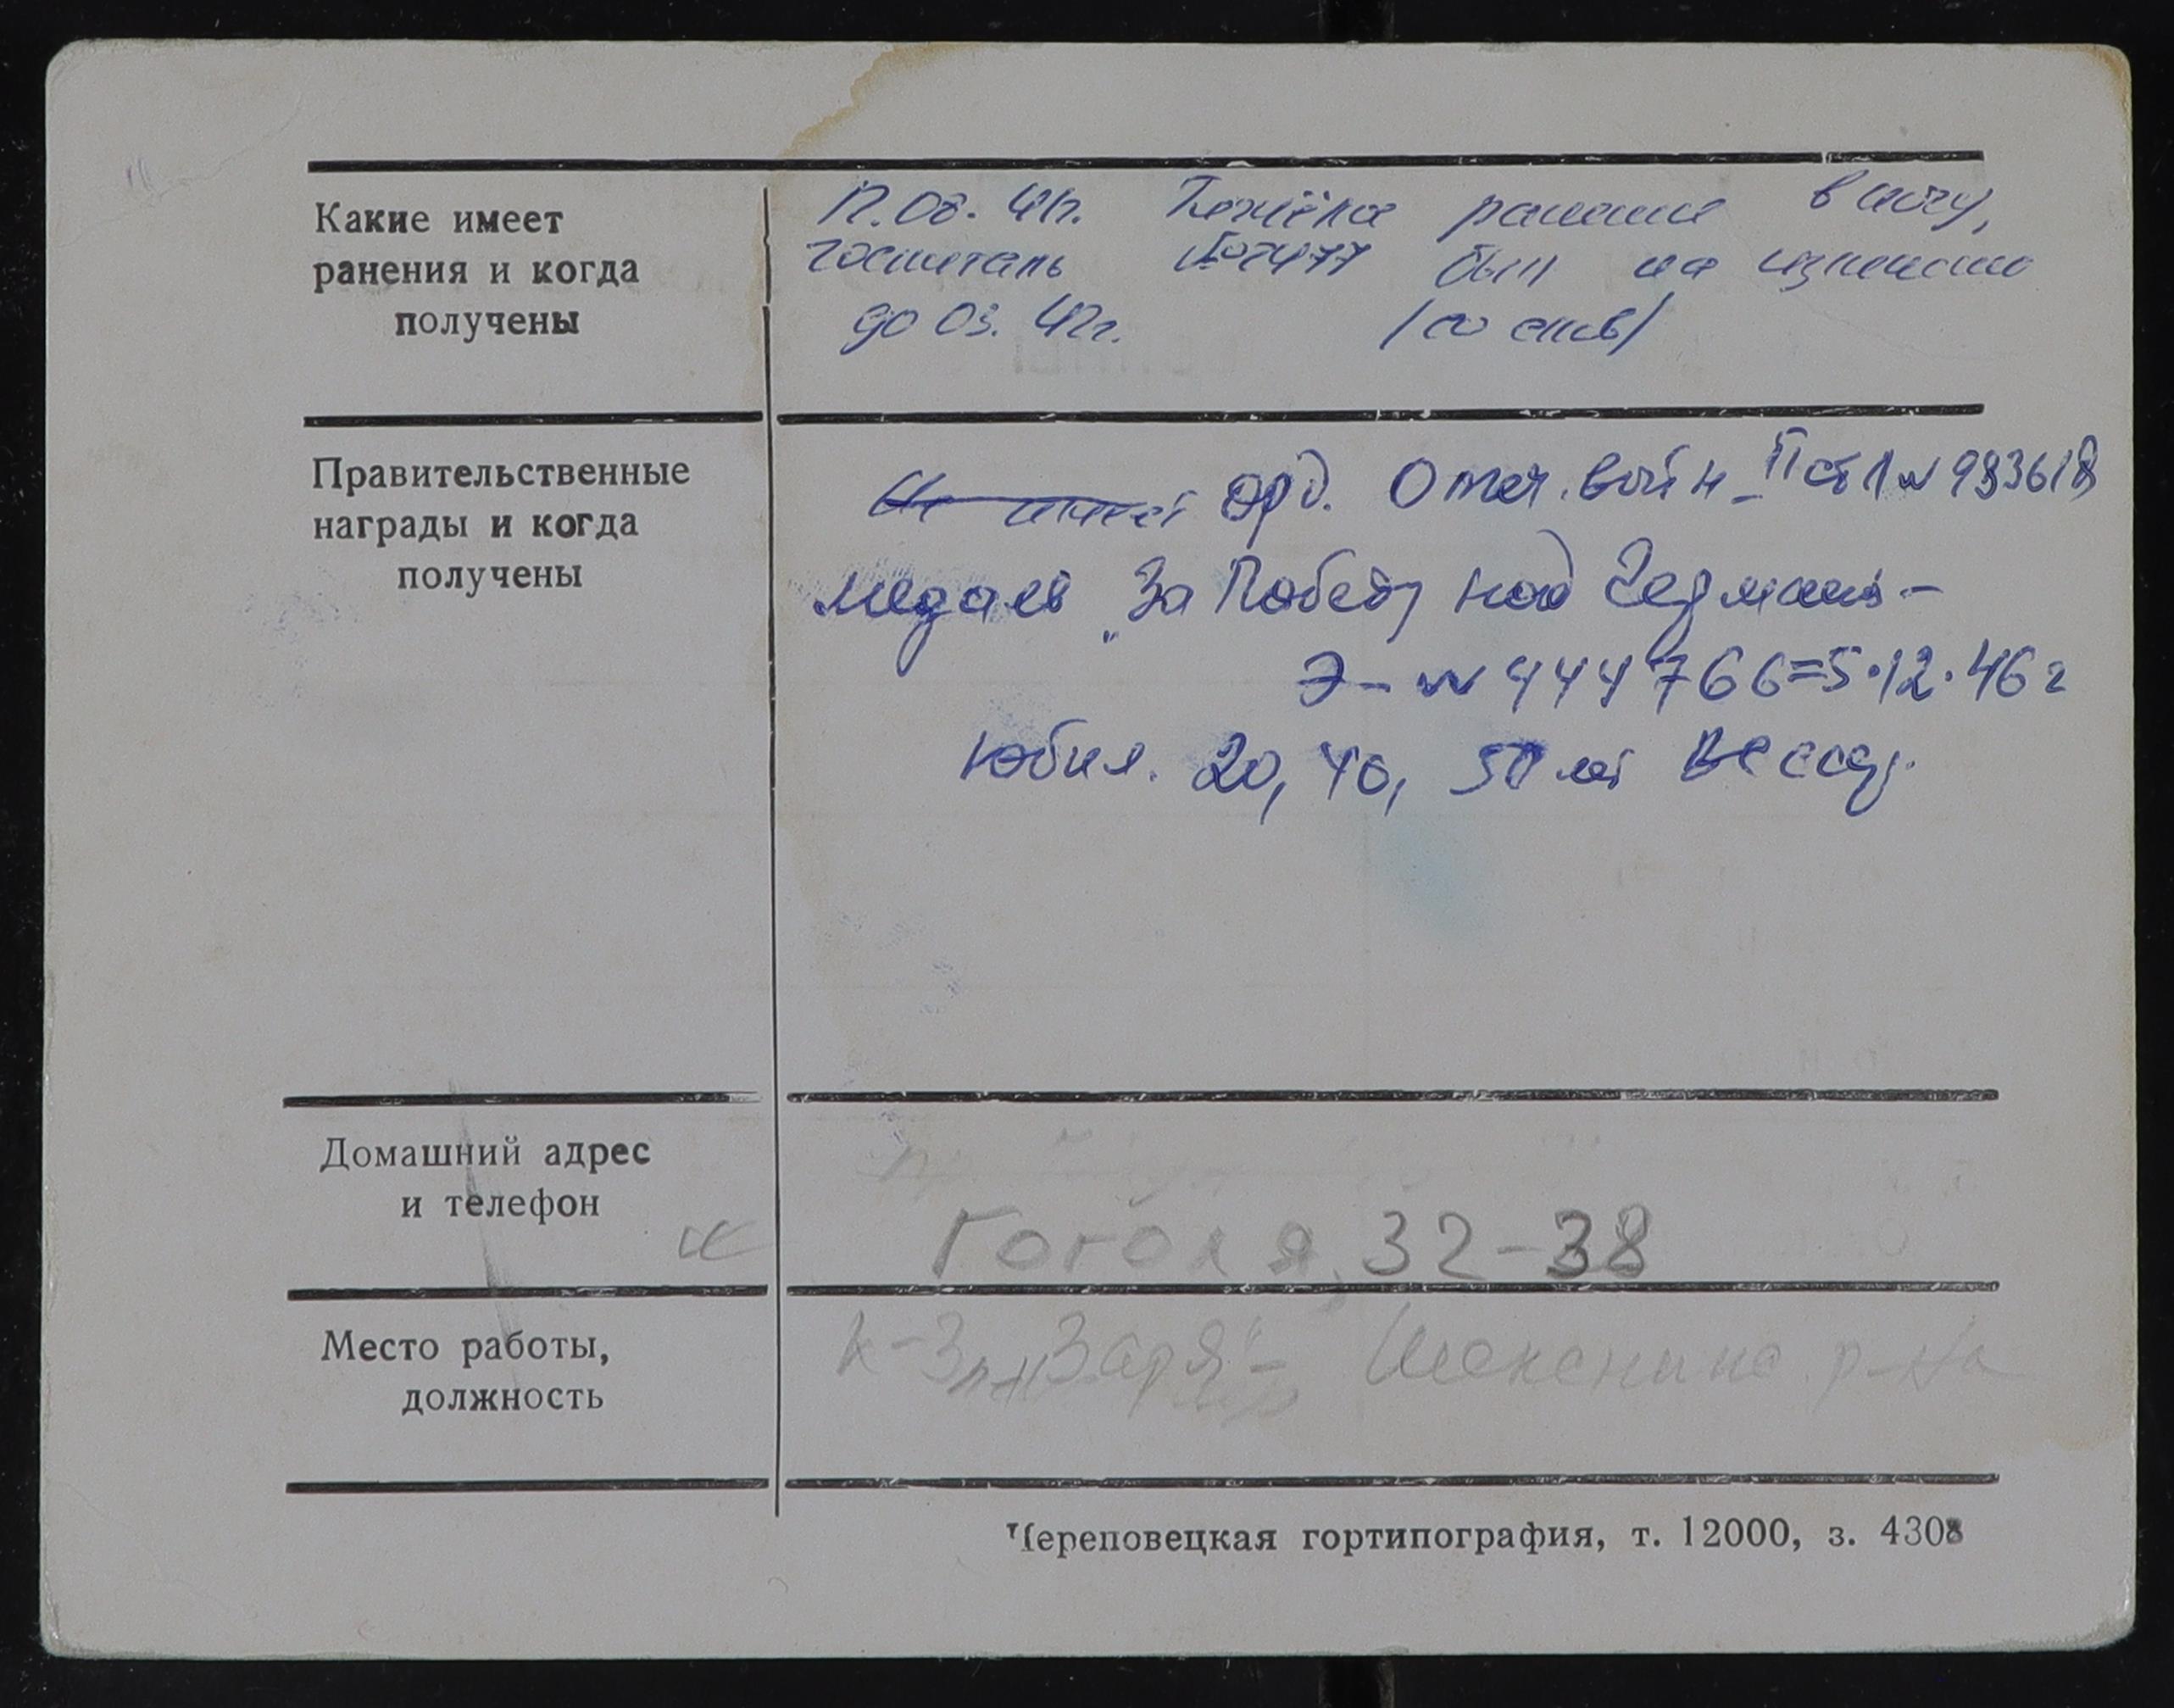 Какие имеет
ранения и когда
получены
12.08.41г. Тяжёлое ранение в ногу,
госпиталь №2477 был на излечении
до 03.42г. /со слов/
Правительственные
награды и когда
получены
Не имеет орд. Отеч. войн - II ст Л № 983618
медаль "За Победу над Германи-
Э - № 444766 = 5.12.46 г
Юбил. 20, 40, 50 лет
Домашний адрес
и телефон
Гоголя, 32-38
Место работы,
должность
к-з "Заря" - Шекснин р-на
Череповецкая гортипография, т. 12000, з. 4308